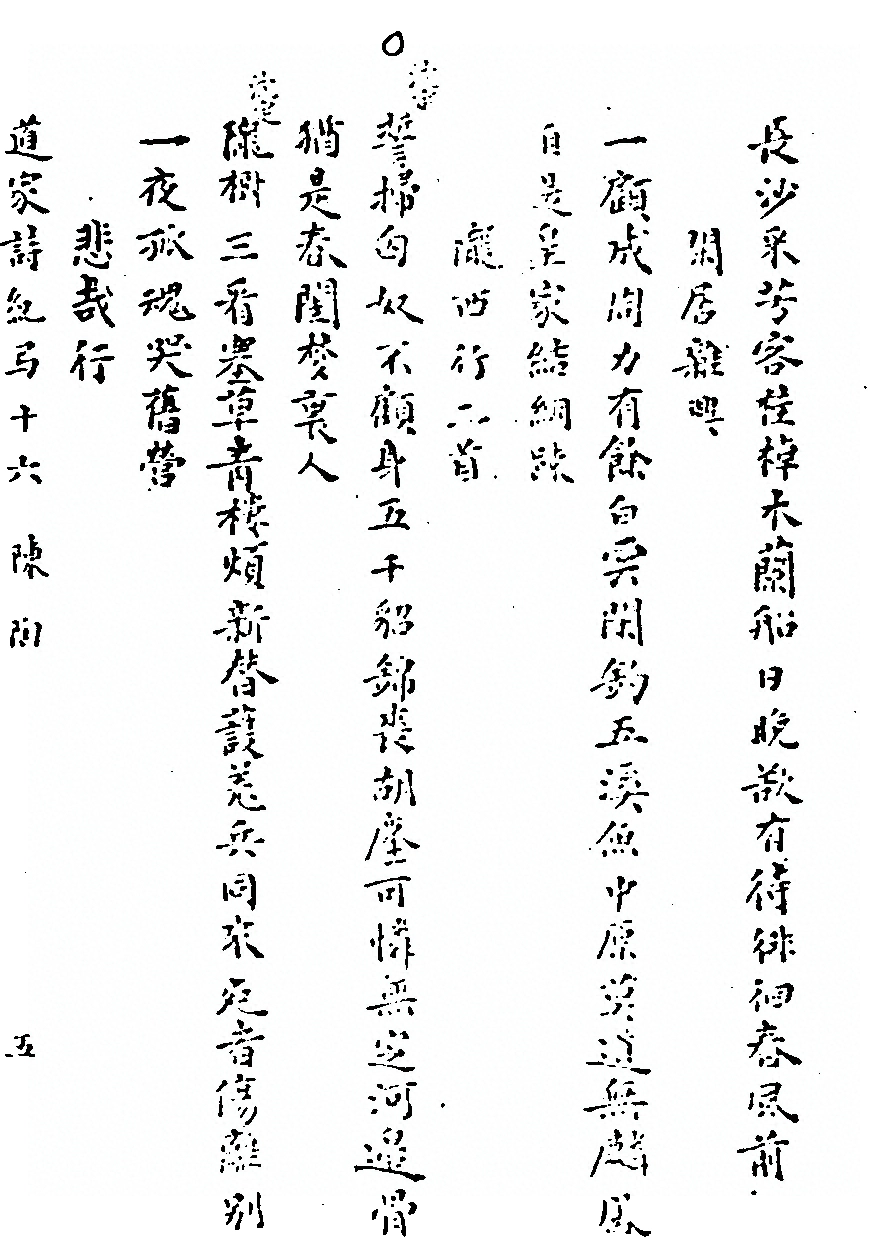 長沙采芳客桂棹木蘭船日晚欲有待徘徊春風前
閒居雜興
一顧成周力有餘白雲閑釣五溪魚中原莫道無麟鳳
自是皇家結網踈
隴西行二首
誓掃匈奴不顧身五千貂錦喪胡塵可憐無定河邊骨
猶是春閨夢裏人
隴樹三看塞草青樓煩新替護羌兵同來死者傷離別
一夜孤魂哭舊營
悲哉行
道家詩紀弓十六 陳陶 五